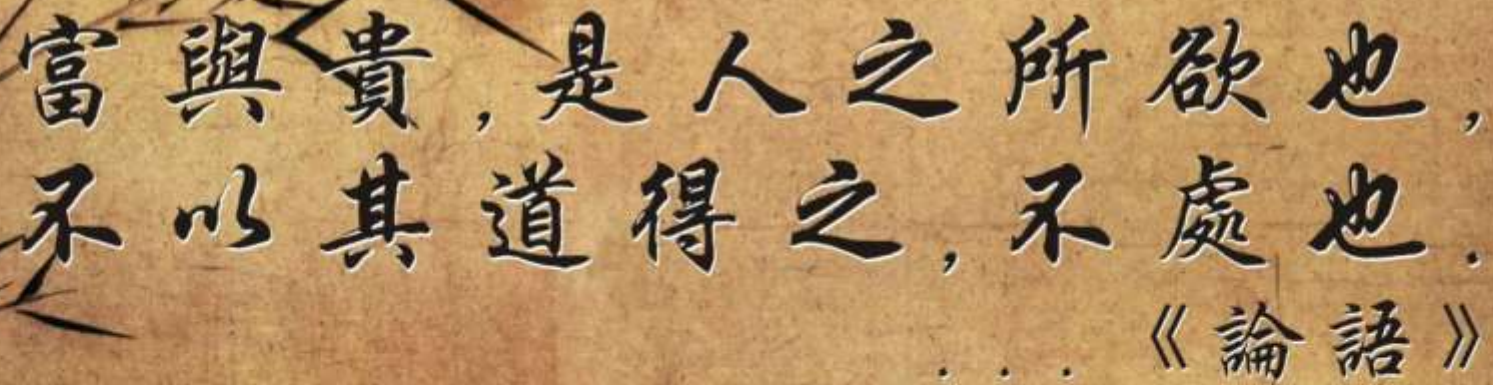 富與貴,是人之所欲也,
不以其道得之,不處也.
...《論語》